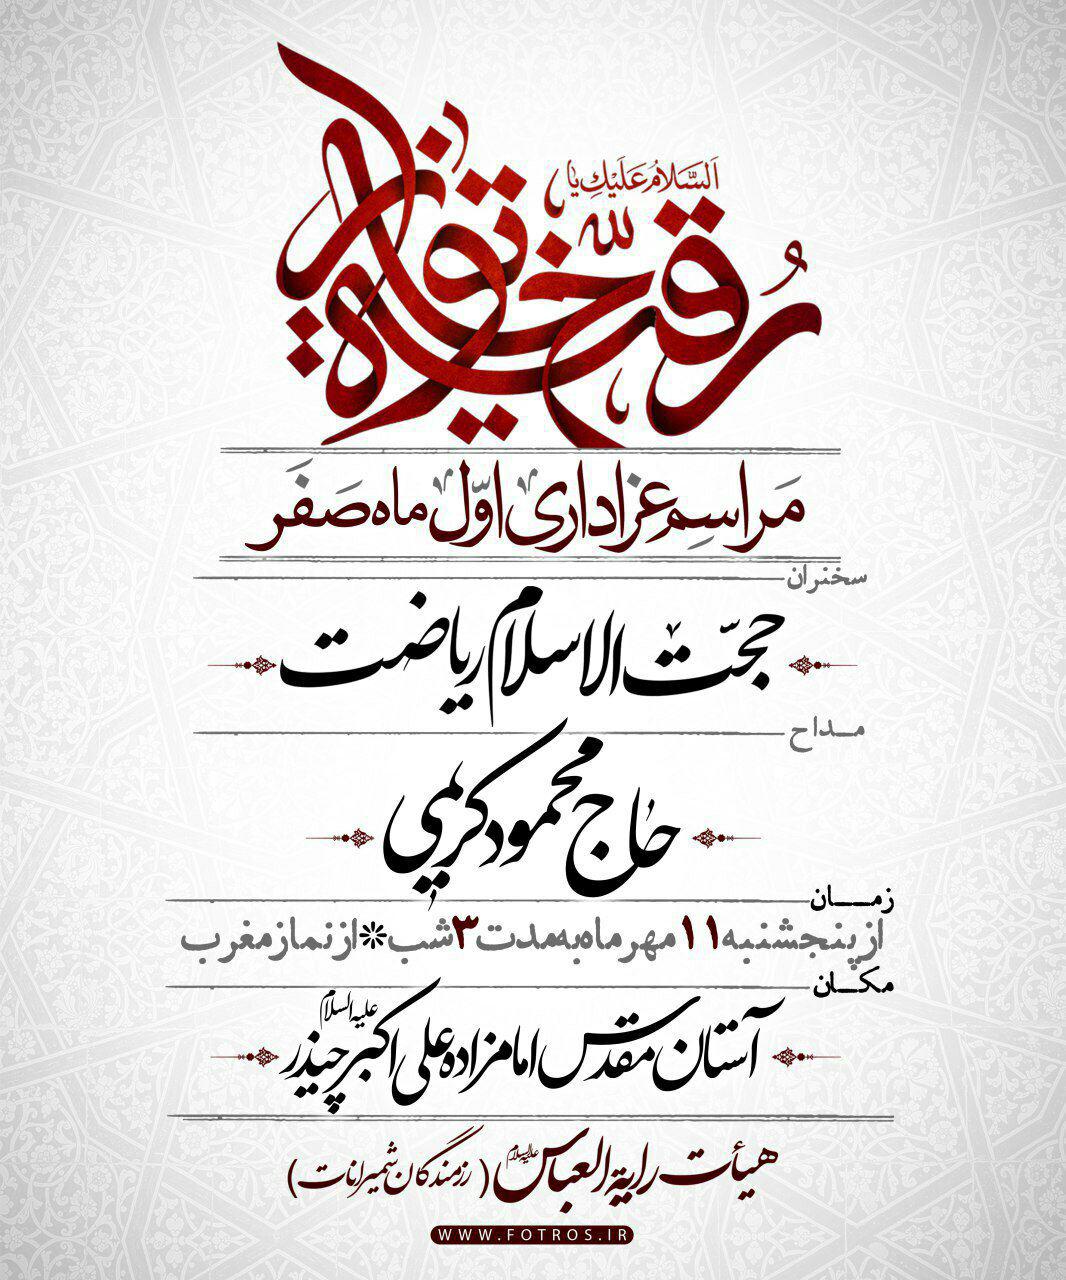 اَلسَّلامُ عَلَیْكِ یا
رُقیّة
مَراسِمِ عزاداری اوّل ماه صَفَر
سخنران
حجّت الاسلام ریاضت
مداح
حاج محمود کریمی
زمان
از پنجشنبه ۱۱ مهر ماه به مدت ۳ شب * از نماز مغرب
مکان
آستان مقدس امامزاده علی اکبر علیه السلام چیذر
هیأت رایة العباس علیه السلام (رزمندگان شمیرانات)
WWW.FOTROS.IR